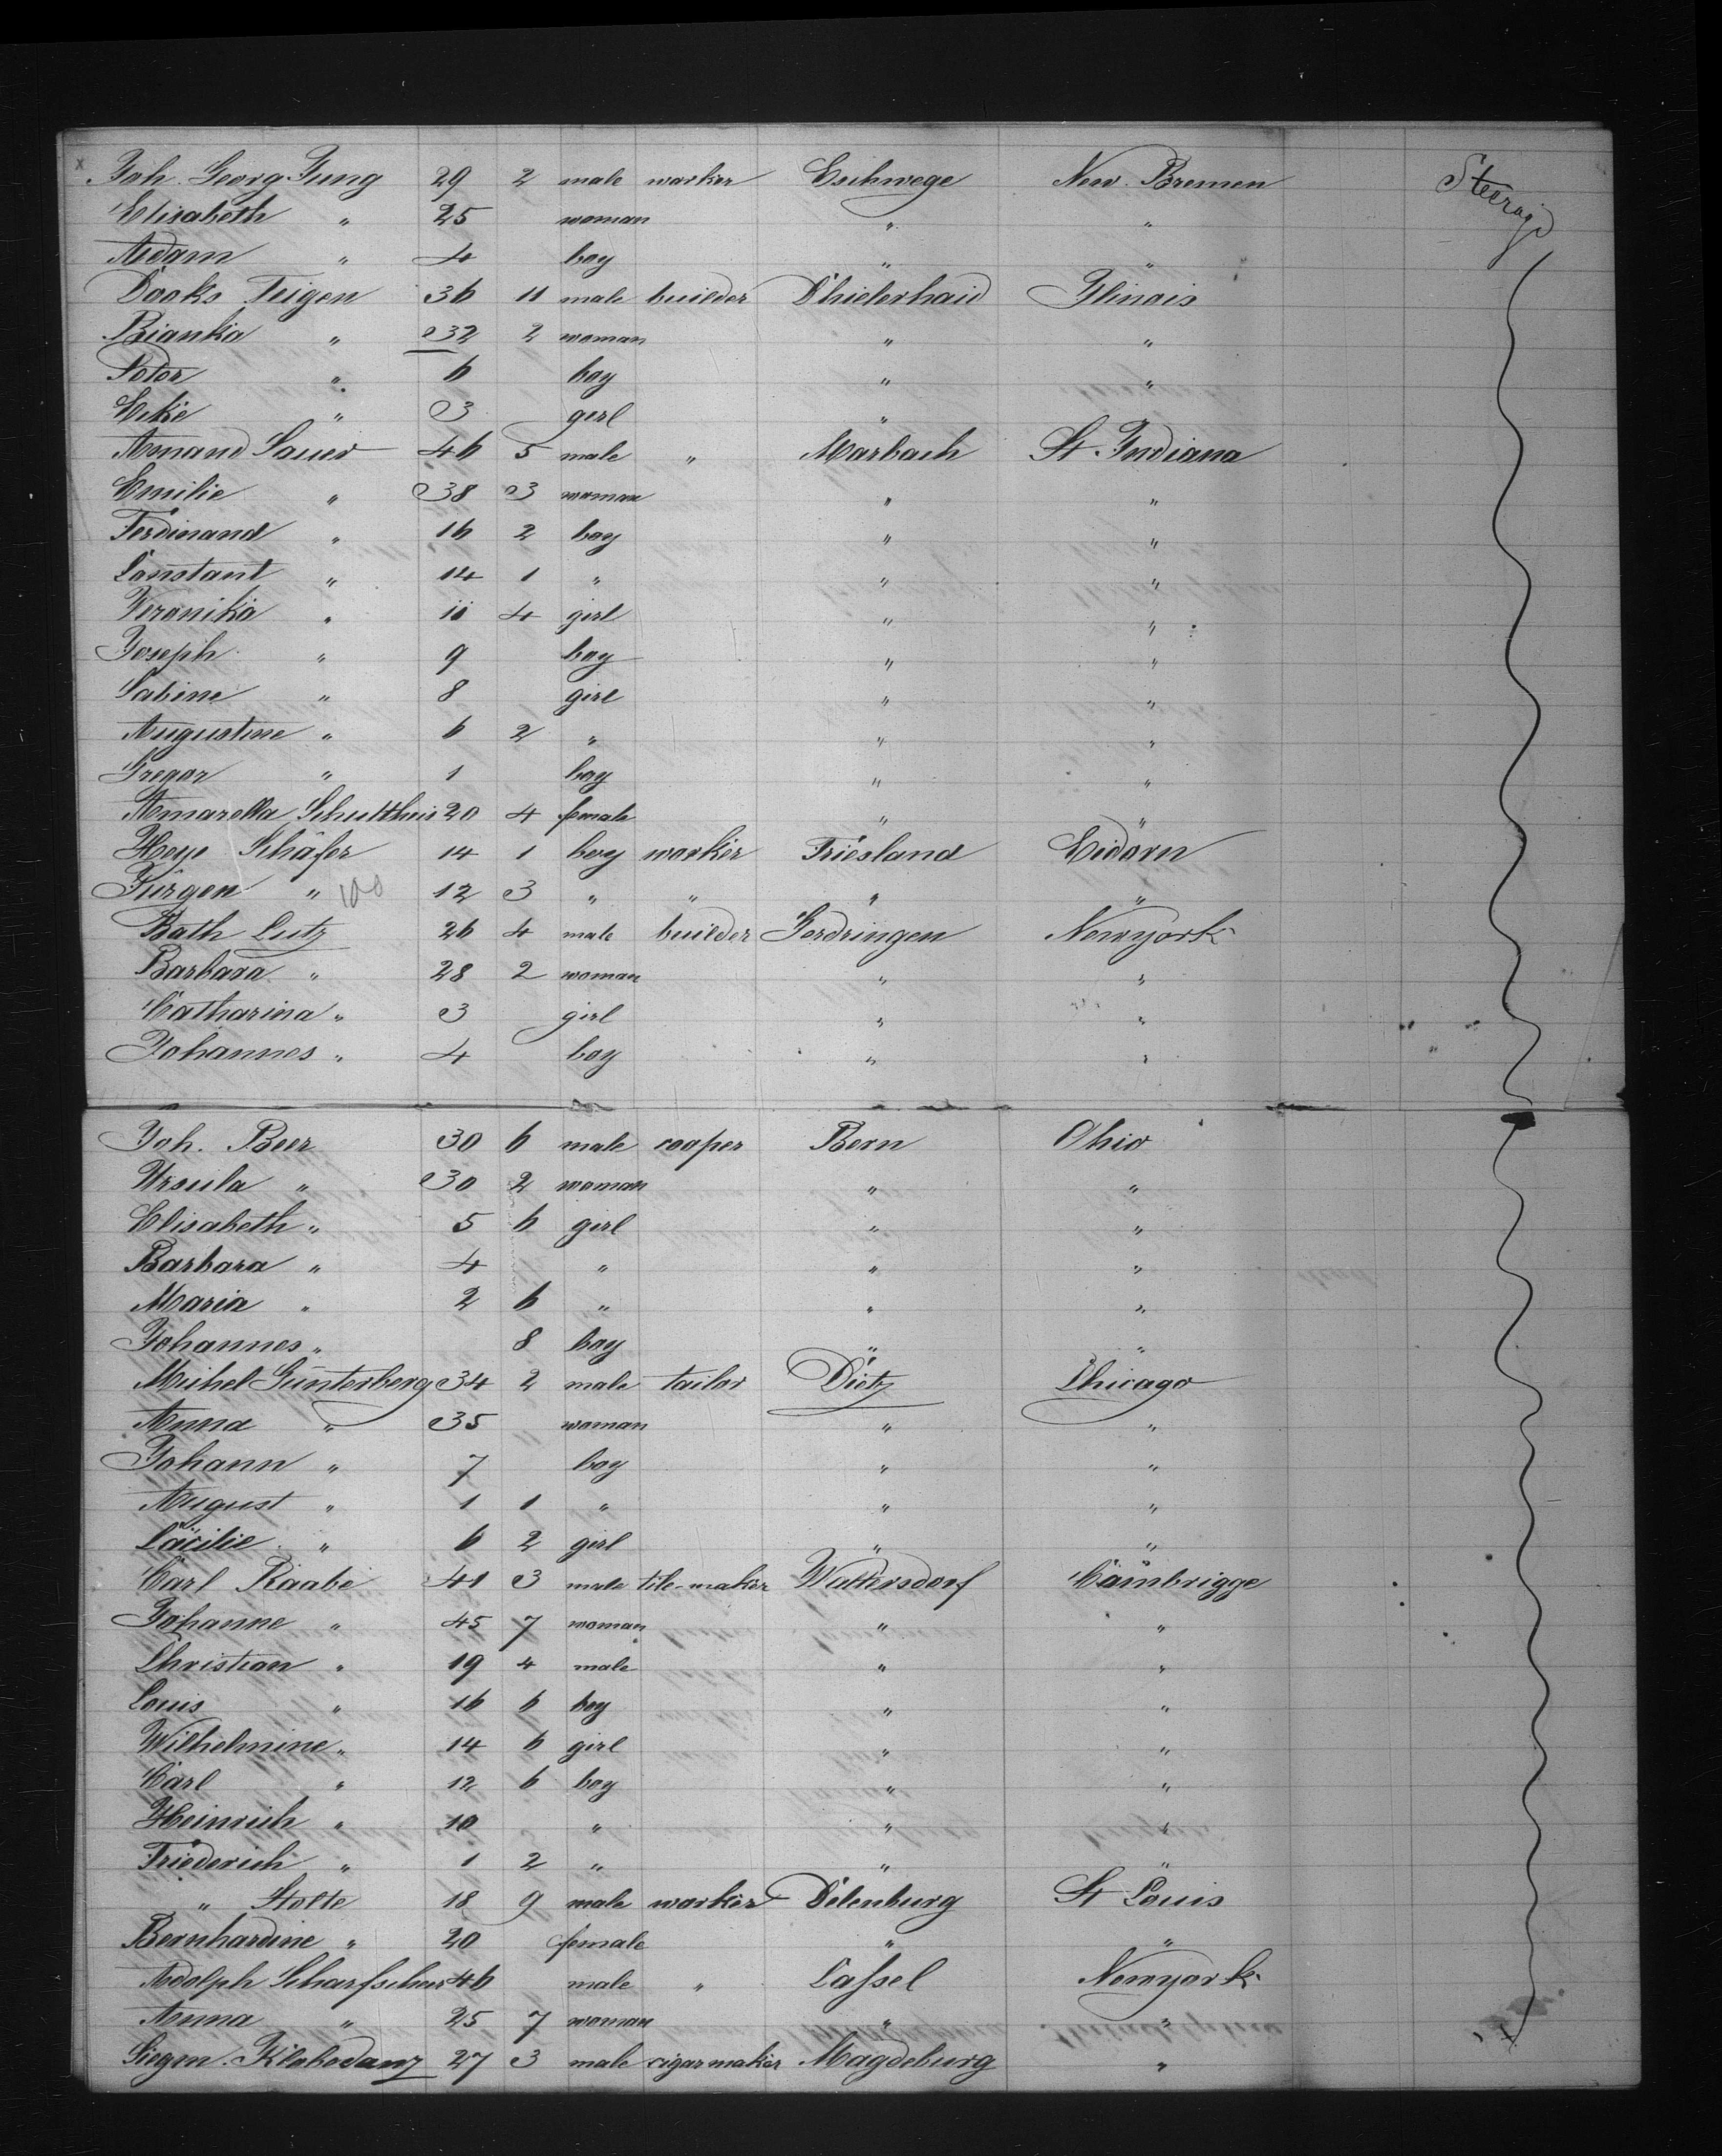 Joh. Georg Jung 29 2 male worker Eschwege New. Bremen Steerage
Elisabeth " 25 woman " "
Adam " 4 boy " "
Dooks Teigen 36 11 male builder Thielerhaid Ilinois
Bianka " 32 2 woman " "
Peter " 6 boy " "
Eike " 3 girl " "
Amand Sauer 46 5 male " Marbach St. Indiana
Emilie " 38 3 woman " "
Ferdinand " 16 2 boy " "
Constant " 14 1 " " "
Veronika " 11 4 girl " "
Joseph " 9 boy " "
Sabine " 8 girl " "
Augustine " 6 2 " " "
Gregor " 1 boy " "
Amarella Schultheis 20 4 female " "
Heye Schäfer 14 1 boy worker Friesland Eidorn
Jürgen " 100 12 3 " " " "
Bath Lutz 26 4 male builder Gerdringen Newyork
Barbara " 28 2 woman " "
Catharina " 3 girl " "
Johannes " 4 boy " "
Joh. Beer 30 6 male cooper Bern Ohio
Ursula " 30 2 woman " "
Elisabeth " 5 6 girl " "
Barbara " 4 " " "
Maria " 2 6 " " "
Johannes " 8 boy " "
Michel Günterberg 34 2 male tailor Dietz Chicago
Anna " 35 woman " "
Johann " 7 boy " "
August " 1 1 " " "
Cäcilie " 6 2 girl " "
Carl Raabe 41 3 male tile-maker Waltersdorf Cambrigge
Johanne " 45 7 woman " "
Christian " 19 4 male " "
Louis " 16 6 boy " "
Wilhelmine " 14 6 girl " "
Carl " 12 6 boy " "
Heinrich " 10 " " "
Friederich " 1 2 " " "
" Stolte 18 9 male worker Delenburg St Louis
Bernhardine " 20 female " "
Adolph Scharfscheer 46 male " Cassel Newyork
Anna " 25 7 woman " "
Siegm. Klohodanz 27 3 male cigar maker Magdeburg "